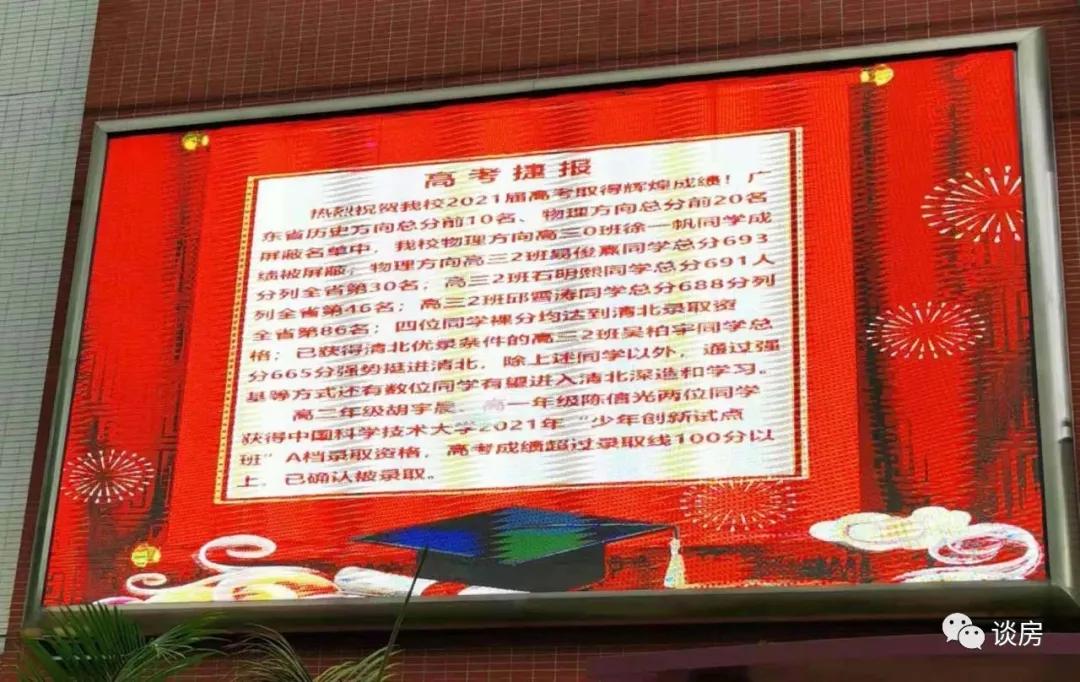 高考捷报
热烈祝贺我校2021届高考取得辉煌成绩！广
东省历史方向总分前10名、物理方向总分前20名
屏蔽名单中，我校物理方向高三0班徐一帆同学成
绩被屏蔽；物理方向高三2班易俊熹同学总分693
分列全省第30名；高三2班石明熙同学总分691人
列全省第46名；高三2班邱雪涛同学总分688分列
全省第86名；四位同学裸分均达到清北录取资
格；已获得清北优录条件的高三2班吴柏宇同学总
分665分强势挺进清北，除上述同学以外，通过强
基等方式还有数位同学有望进入清北深造和学习。
高二年级胡宇晨、高一年级陈信光两位同学
获得中国科学技术大学2021年“少年创新试点
班”A档录取资格，高考成绩超过录取线100分以
上，已确认被录取。
谈房